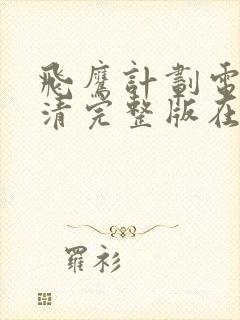 飛鷹計劃電
清完整版在
羅衫